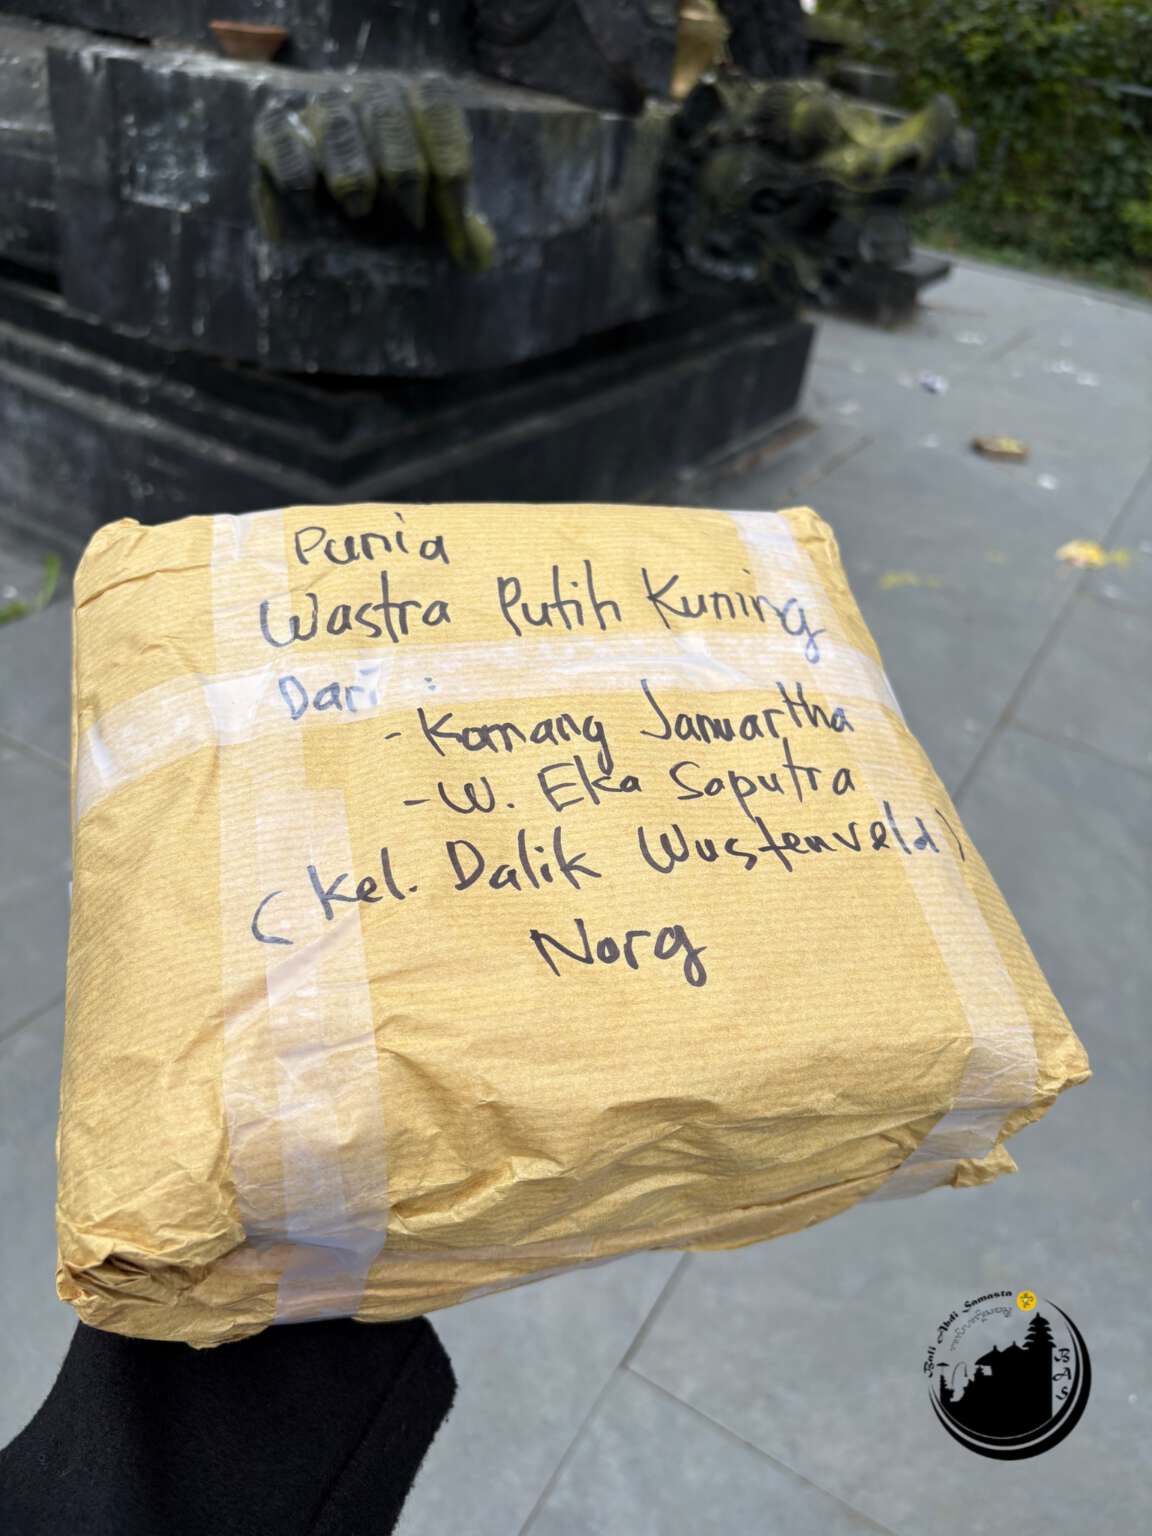 Punia
Wastra Putih Kuning
Dari :
- Komang Januartha
- W. Eka Saputra
(Kel. Dalik Wustenveld)
Norg
Bali Abdi Samasta